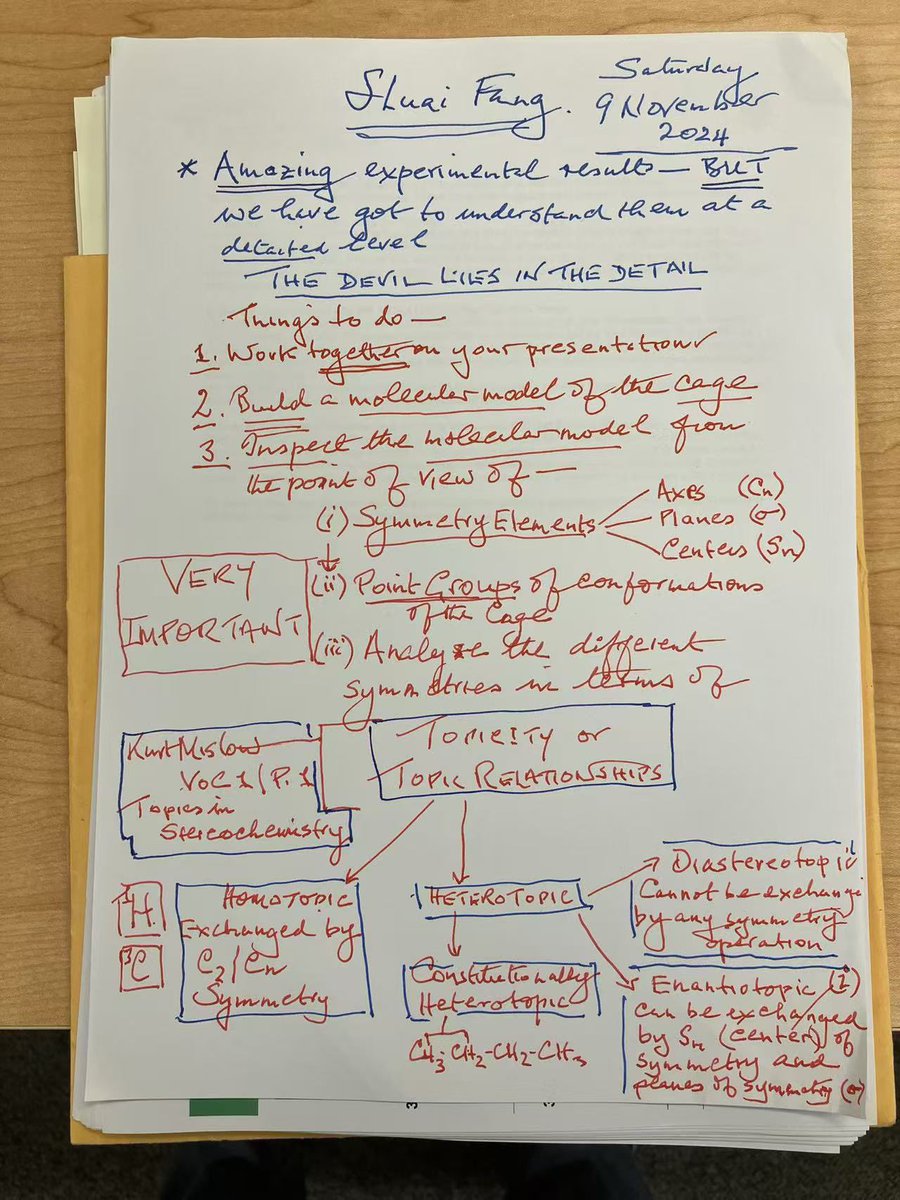 Shuai Fang.
Saturday
9 November
2024
* Amazing experimental results — BUT
we have got to understand them at a
detailed level
THE DEVIL LIES IN THE DETAIL
Things to do —
1. Work together on your presentations
2. Build a molecular model of the cage
3. Inspect the molecular model from
the point of view of —
(i) Symmetry Elements
Axes (Cn)
Planes (σ)
Centers (Sn)
VERY
IMPORTANT
(ii) Point Groups of conformations
of the Cage
(iii) Analyze the different
symmetries in terms of
TOPICITY or
TOPIC RELATIONSHIPS
Kurt Mislow
Vol 1/P.1
Topics in
Stereochemistry
1H
13C
HOMOTOPIC
Exchanged by
C2/Cn
Symmetry
HETEROTOPIC
Constitutionally
Heterotopic
CH3-CH2-CH2-CH3
Diastereotopic
Cannot be exchange
by any symmetry
operation
Enantiotopic (i)
can be exchanged
by Sn (center) of
symmetry and
planes of symmetry (σ)